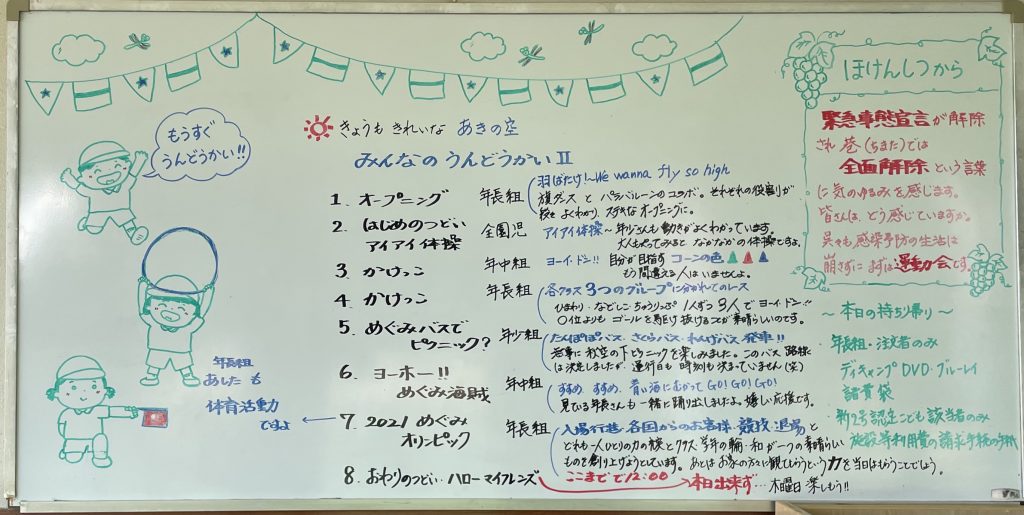 もうすぐ
うんどうかい!!
きょうも きれいな あきの空
みんなの うんどうかい II
1. オープニング 年長組
羽ばたけ!~We wanna fly so high
旗ダンス と パラバルーンの コラボ。それぞれの役割が
よくわかり、ステキな オープニングに。
2. はじめのつどい 全園児
アイアイ体操
アイアイ体操~年少さんも 動きがよくわかっています。
大人もやってみると なかなかの体操ですよ。
3. かけっこ 年中組
ヨーイ・ドン!! 自分が目指す コーンの色
もう間違える人は いませんよ。
4. かけっこ 年長組
各クラス 3つのグループに分かれてのレース
ひまわり・なでしこ・ちゅうりっぷ 1人ずつ 3人で ヨーイ・ドン!!
○位よりも ゴールを駆け抜けることが素晴らしいのです。
5. めぐみバスで 年少組
ピクニック?
たんぽぽバス・さくらバス・れんげバス 発車!!
秋空の下ピクニックを楽しみました。このバス 路線
は決定しましたが、運行日も 時刻も 決まっていません(笑)
6. ヨーホー!! 年中組
めぐみ海賊
すすめ すすめ 青い海にむかって GO! GO! GO!
見ている年長さんも 一緒に踊り出しましたよ。嬉しい応援です。
7. 2021 めぐみ 年長組
オリンピック
入場行進・各国からのお客様・競技・退場 と
どれも一人ひとりの力の競技とクラス・学年の輪・和が一つの素晴らしい
ものを創り上げようとしています。あとは お家の方々に観てもらうという力を当日はもらうことでしょう。
8. おわりのつどい・ハローマイフレンズ
ここまでで12:00
本日出来ず… 木曜日 楽しもう!!
年長組
あした も
体育活動
ですよ
ほけんしつから
緊急事態宣言が解除
され 巷(ちまた)では
全面解除 という言葉
に気のゆるみを感じます。
皆さんは、どう感じていますか。
呉々も感染予防の生活は
崩さずに まずは運動会です。
~ 本日の持ち帰り ~
年長組・注文者のみ
デイキャンプ DVD・ブルーレイ
諸費袋
新2号認定こども該当者のみ
施設等利用費の請求手続の手紙